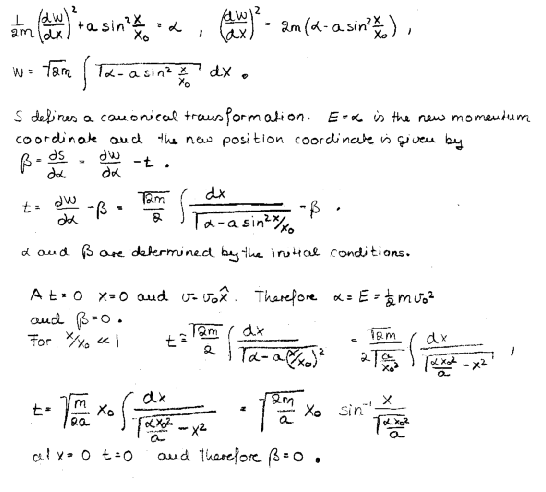 1/2m (dW/dx)² + a sin² x/x₀ = α , (dW/dx)² = 2m(α - a sin² x/x₀) ,
W = √2m ∫ √α - a sin² x/x₀ dx .
S defines a canonical transformation. E = α is the new momentum
coordinate and the new position coordinate is given by
β = ∂S/∂α = ∂W/∂α - t .
t = ∂W/∂α - β = √2m/2 ∫ dx/√α - a sin² x/x₀ - β .
α and β are determined by the initial conditions.
At t = 0 x = 0 and v = v₀x̂. Therefore α = E = ½ m v₀²
and β = 0.
For x/x₀ << 1 t = √2m/2 ∫ dx/√α - a(x/x₀)² = √2m/2√a/x₀² ∫ dx/√αx₀²/a - x² ,
t = √m/2a x₀ ∫ dx/√αx₀²/a - x² = √2m/a x₀ sin⁻¹ x/√αx₀²/a
at x = 0 t = 0 and therefore β = 0 .